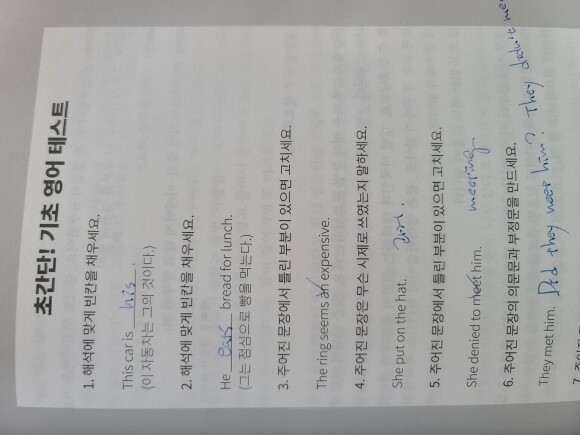 초간단! 기초 영어 테스트
1. 해석에 맞게 빈칸을 채우세요.
This car is his.
(이 자동차는 그의 것이다.)
2. 해석에 맞게 빈칸을 채우세요.
He eats bread for lunch.
(그는 점심으로 빵을 먹는다.)
3. 주어진 문장에서 틀린 부분이 있으면 고치세요.
The ring seems an expensive.
4. 주어진 문장은 무슨 시제로 쓰였는지 말하세요.
She put on the hat. 과거.
5. 주어진 문장에서 틀린 부분이 있으면 고치세요.
She denied to meet him. meeting
6. 주어진 문장의 의문문과 부정문을 만드세요.
They met him. Did they meet him? They didn't